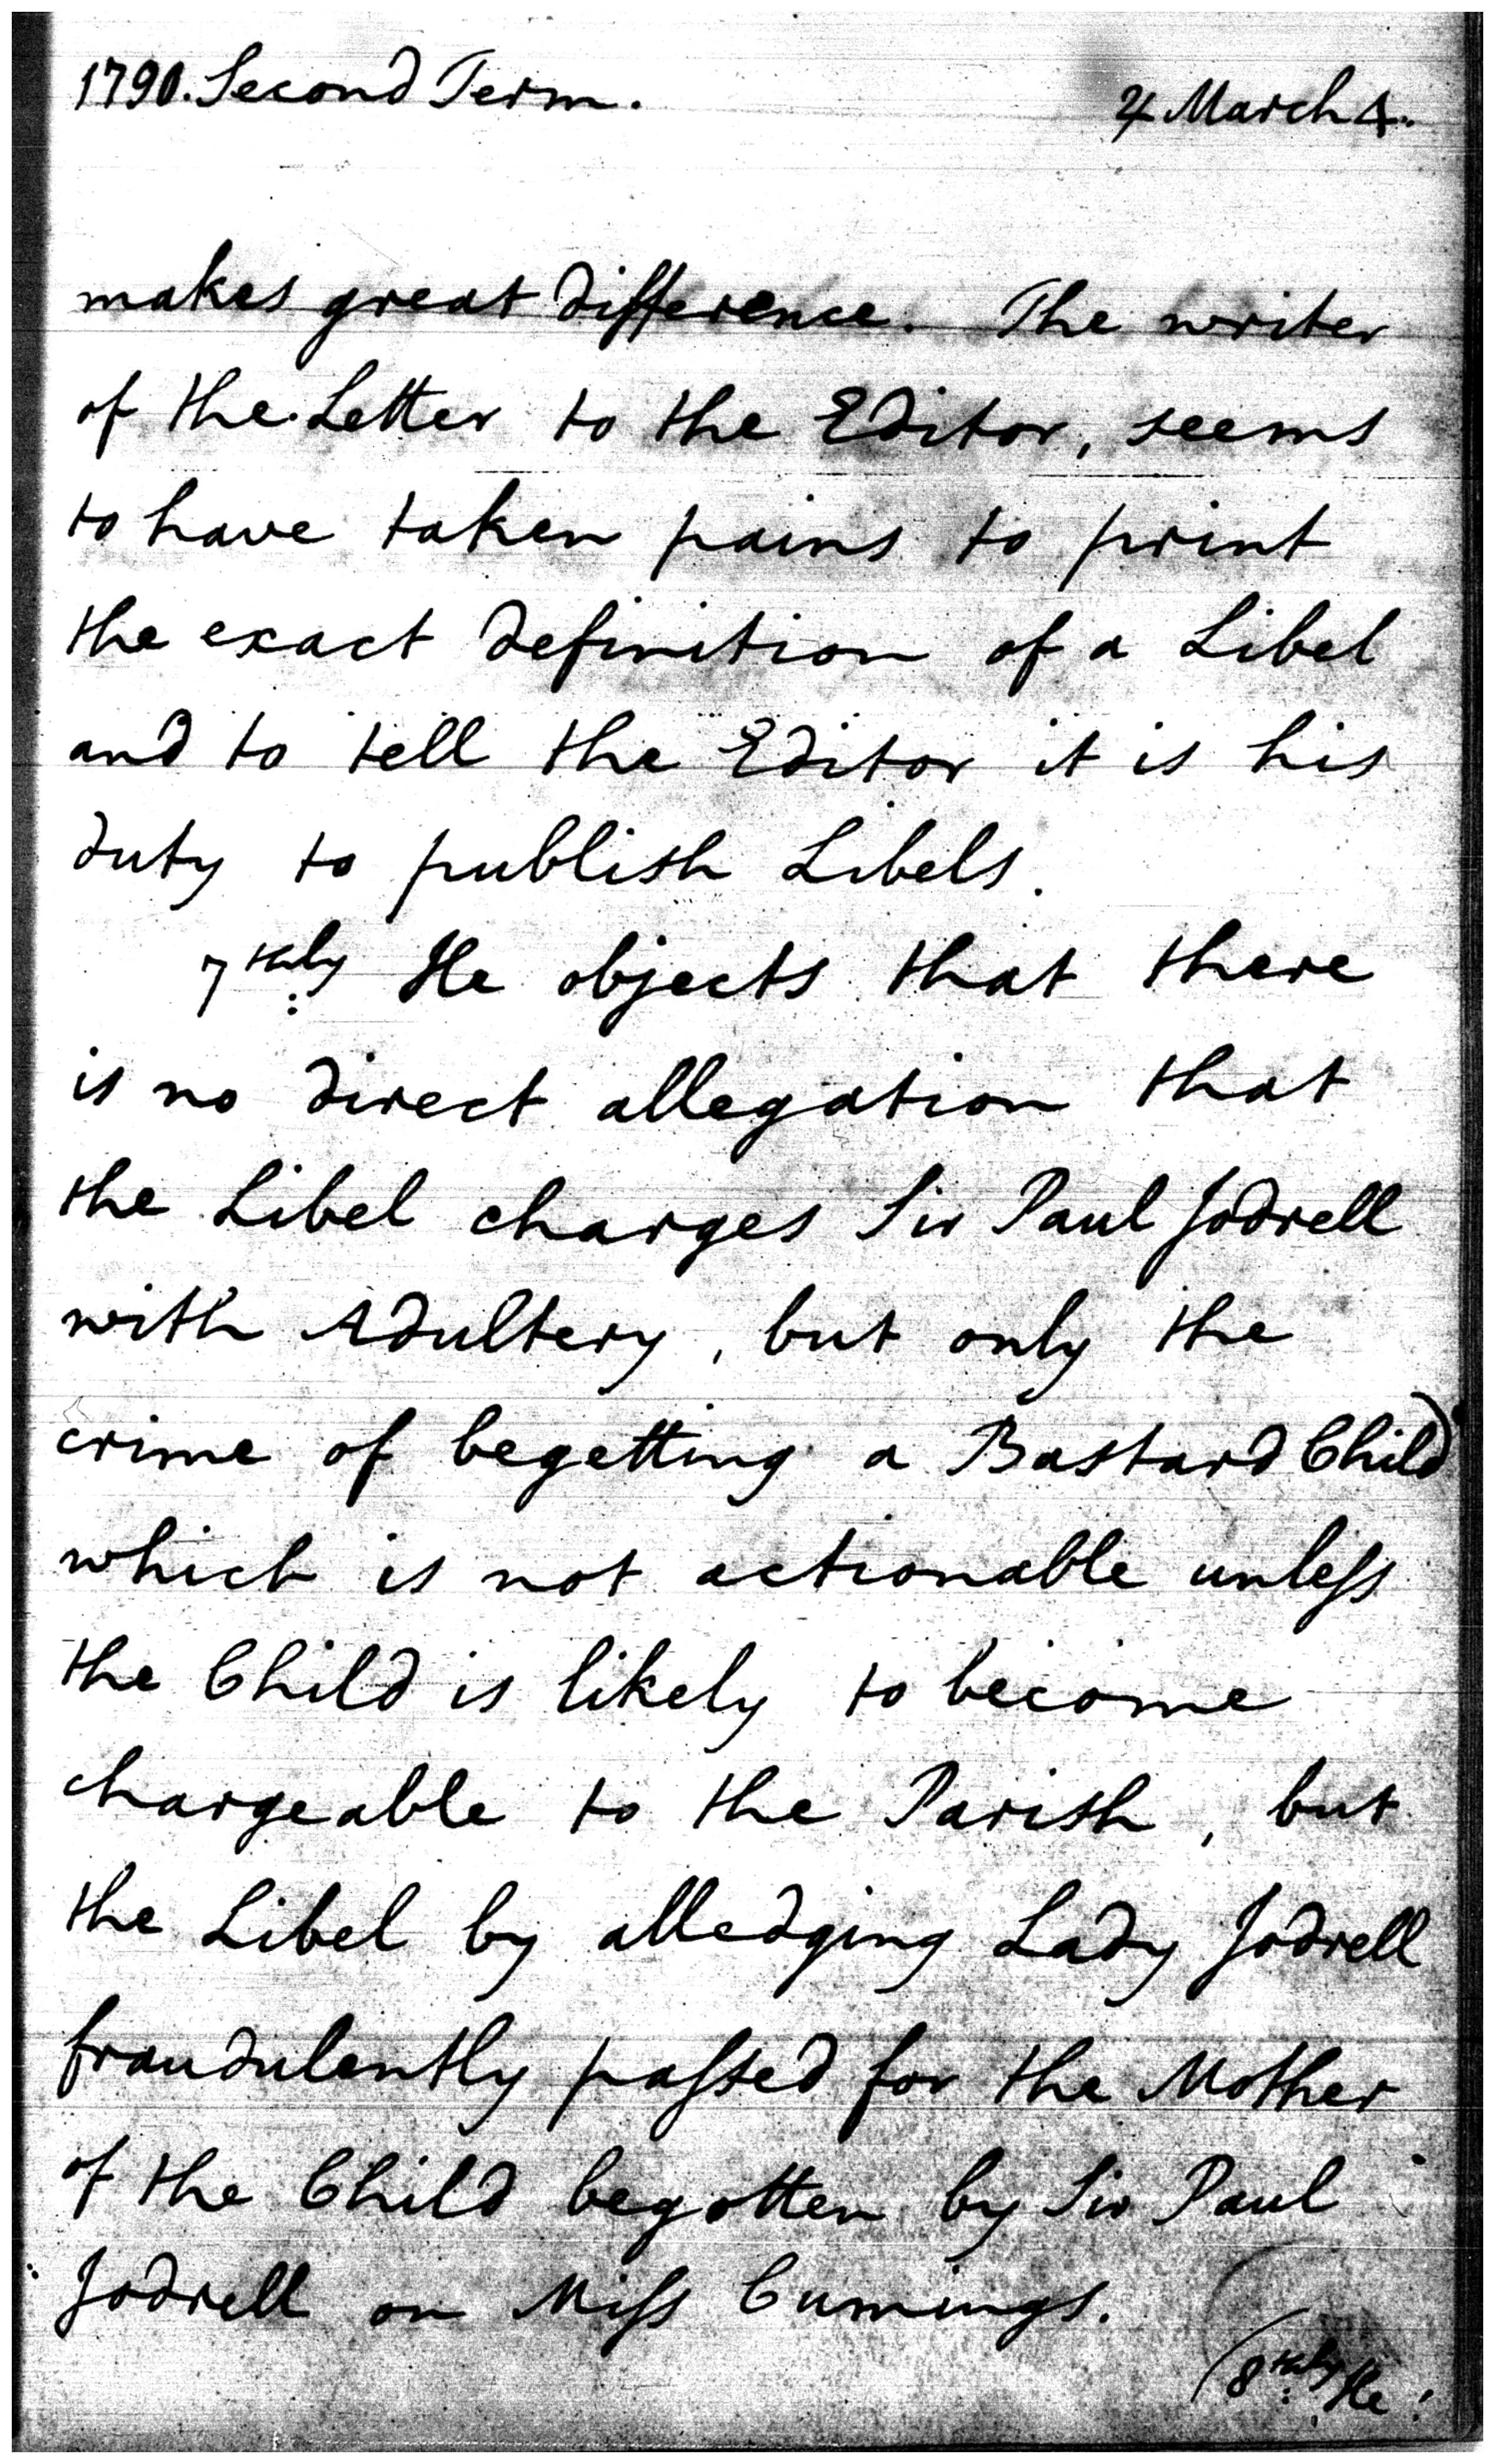 1790. Second Term.
4 March 4.
makes great difference. The writer
of the Letter to the Editor, seems
to have taken pains to print
the exact definition of a Libel
and to tell the Editor it is his
duty to publish Libels.
7thly He objects that there
is no direct allegation that
the Libel charges Sir Paul Jodrell
with Adultery, but only the
crime of begetting a Bastard Child
which is not actionable unleſs
the Child is likely to become
chargeable to the Parish, but
the Libel by alledging Lady Jodrell
fraudulently paſsed for the Mother
of the Child begotten by Sir Paul
Jodrell on Miſs Cumings.
(8thly He